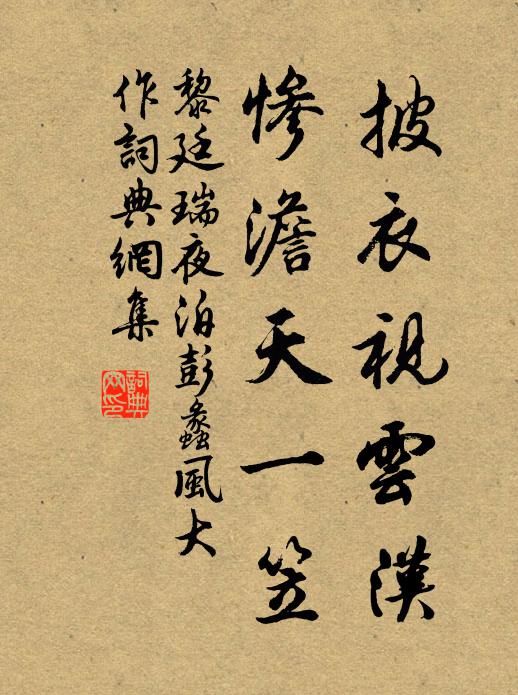 披衣視雲漢
慘澹天一笠
黎廷瑞夜泊彭蠡風大
作詞典網集
詞典網印